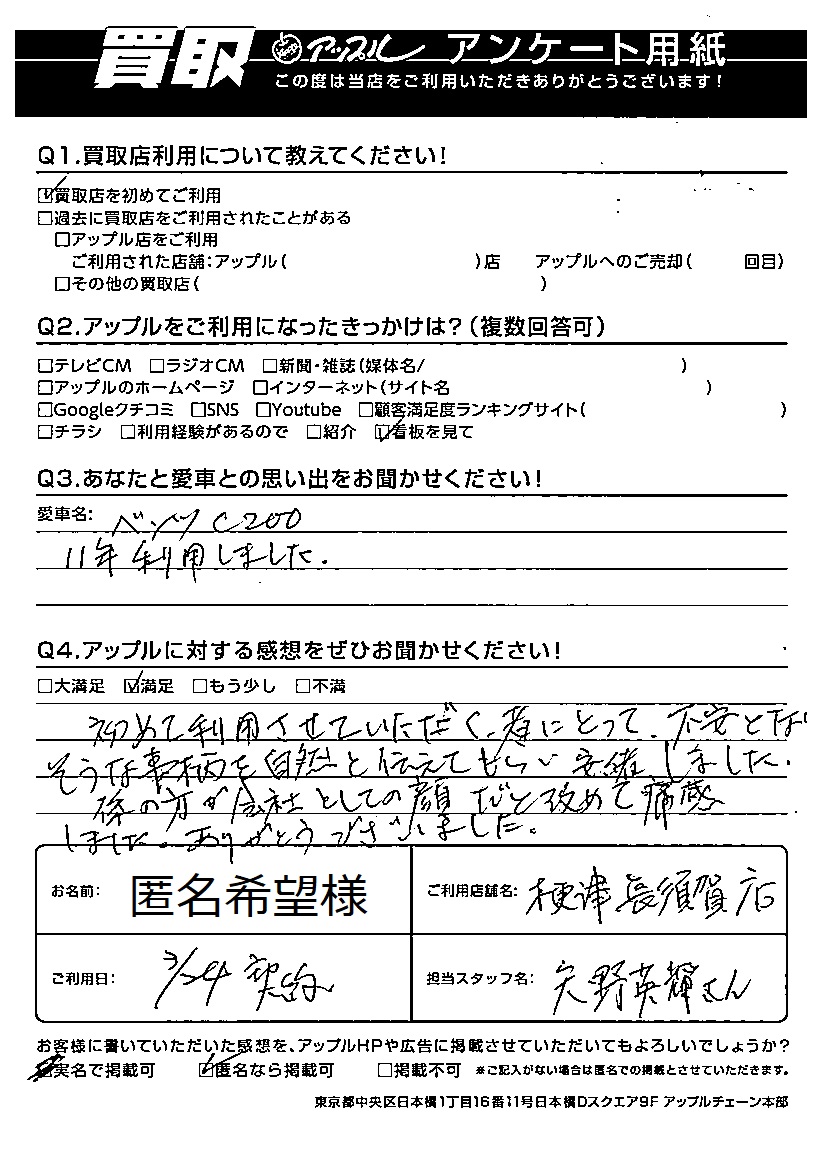 買取 アップル アンケート用紙
この度は当店をご利用いただきありがとうございます!
Q1.買取店利用について教えてください!
☑買取店を初めてご利用
□過去に買取店をご利用されたことがある
□アップル店をご利用
ご利用された店舗:アップル( )店 アップルへのご売却( 回目)
□その他の買取店( )
Q2.アップルをご利用になったきっかけは?(複数回答可)
□テレビCM □ラジオCM □新聞・雑誌(媒体名/ )
□アップルのホームページ □インターネット(サイト名 )
□Googleクチコミ □SNS □Youtube □顧客満足度ランキングサイト( )
□チラシ □利用経験があるので □紹介 ☑看板を見て
Q3.あなたと愛車との思い出をお聞かせください!
愛車名: ベンツ C200
11年利用しました.
Q4.アップルに対する感想をぜひお聞かせください!
□大満足 ☑満足 □もう少し □不満
初めて利用させていただく、者にとって、不安とな
そうな事柄を自然と伝えてもらい安堵しました.
係の方が会社としての顔だと改めて痛感
しました。ありがとうございました。
お名前: 匿名希望様 ご利用店舗名: 木更津長須賀店
ご利用日: 3/24 契約 担当スタッフ名: 矢野英輝さん
お客様に書いていただいた感想を、アップルHPや広告に掲載させていただいてもよろしいでしょうか?
実名で掲載可 ☑匿名なら掲載可 □掲載不可 ※ご記入がない場合は匿名での掲載とさせていただきます。
東京都中央区日本橋1丁目16番11号日本橋Dスクエア9F アップルチェーン本部